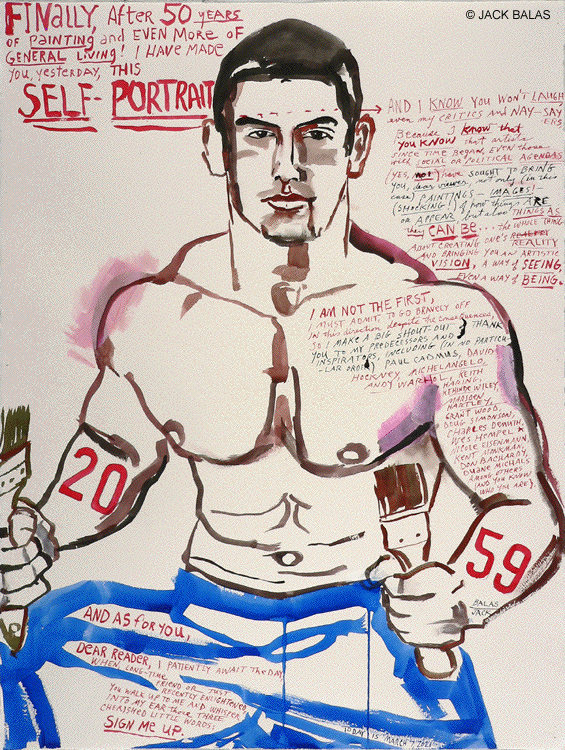 © JACK BALAS
FINALLY, AFTER 50 YEARS
OF PAINTING and EVEN MORE OF
GENERAL LIVING! I HAVE MADE
YOU, yesterday, THIS
SELF-PORTRAIT
AND I KNOW YOU WON'T LAUGH,
even my CRITICS and NAY-SAY
ERS,
Because I know that
YOU KNOW that artists
SINCE TIME BEGAN, EVEN those
with SOCIAL OR POLITICAL AGENDAS
(YES, not) have SOUGHT TO BRING
YOU, dear viewer, not only (in this
case) PAINTINGS— IMAGES!—
(SHOCKING!) of how things ARE
OR APPEAR but also THINGS AS
they CAN BE... the WHOLE THING
ABOUT CREATING ONE'S REALITY
AND BRINGING YOU AN ARTISTIC
VISION, A WAY of SEEING,
EVEN A WAY of BEING.
I AM NOT THE FIRST,
I MUST ADMIT, TO GO BRAVELY OFF
IN this direction despite the consequences,
SO I MAKE A BIG SHOUT-OUT & THANK
YOU TO MY PREDECESSORS AND
INSPIRATORS, INCLUDING (IN NO PARTICU-
-LAR ORDER) PAUL CADMUS, DAVID
HOCKNEY, MICHELANGELO,
ANDY WARHOL, KEITH
HARING,
KEHINDE WILEY,
MARSDEN
HARTLEY,
GRANT WOOD,
DOUG SIMONSON,
CHARLES DEMUTH,
WES HEMPEL
NICOLE EISENMANN,
KENT MONKMAN,
DON BACHARDY,
DUANE MICHALS
AMONG OTHERS
(AND YOU KNOW
WHO YOU ARE).
20
59
BALAS
JACK
AND AS for YOU,
DEAR READER, I PATIENTLY AWAIT THE DAY
WHEN, LONG-TIME
FRIEND OR JUST
RECENTLY ENLIGHTENED,
YOU WALK UP TO ME AND WHISPER
INTO MY EAR those THREE
CHERISHED LITTLE WORDS:
SIGN ME UP.
TODAY IS MARCH 7, 2023